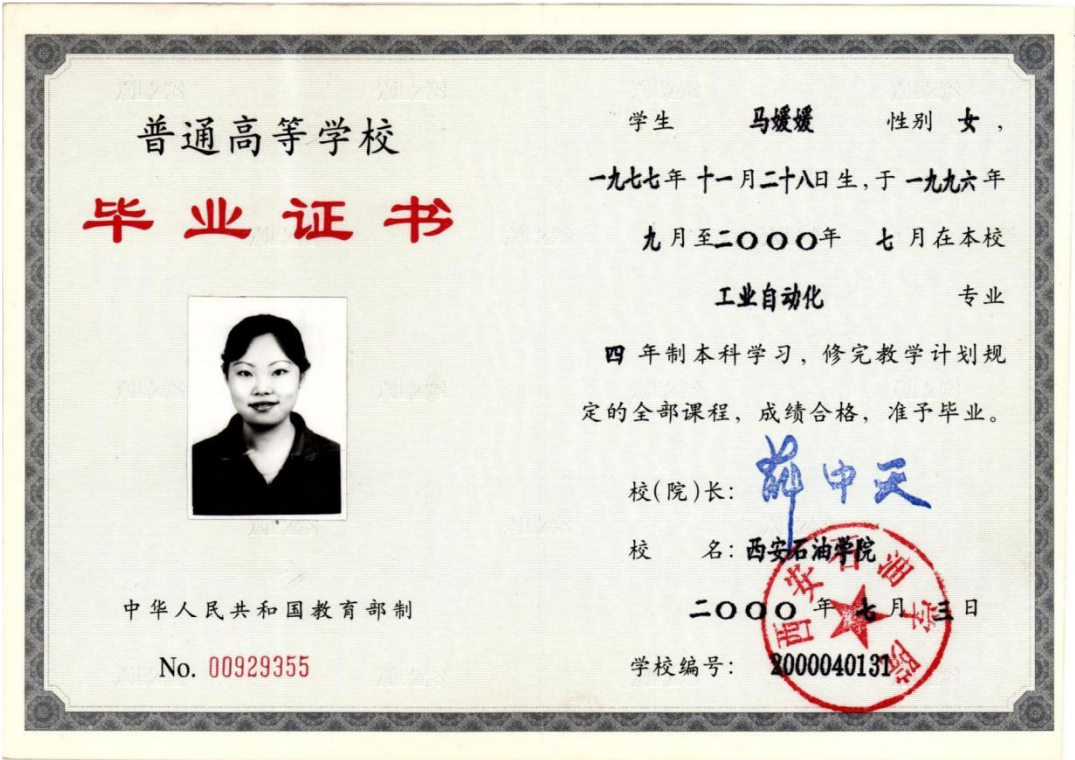 普通高等学校
毕业证书
中华人民共和国教育部制
No. 00929355
学生 马媛媛 性别 女，
一九七七年 十一月二十八日生，于 一九九六年
九月至二〇〇〇年 七月在本校
工业自动化 专业
四 年制本科学习，修完教学计划规
定的全部课程，成绩合格，准予毕业。
校(院)长： 薛中天
校 名：西安石油学院
二〇〇〇 年 七月 三日
学校编号： 2000040131
西安石油学院